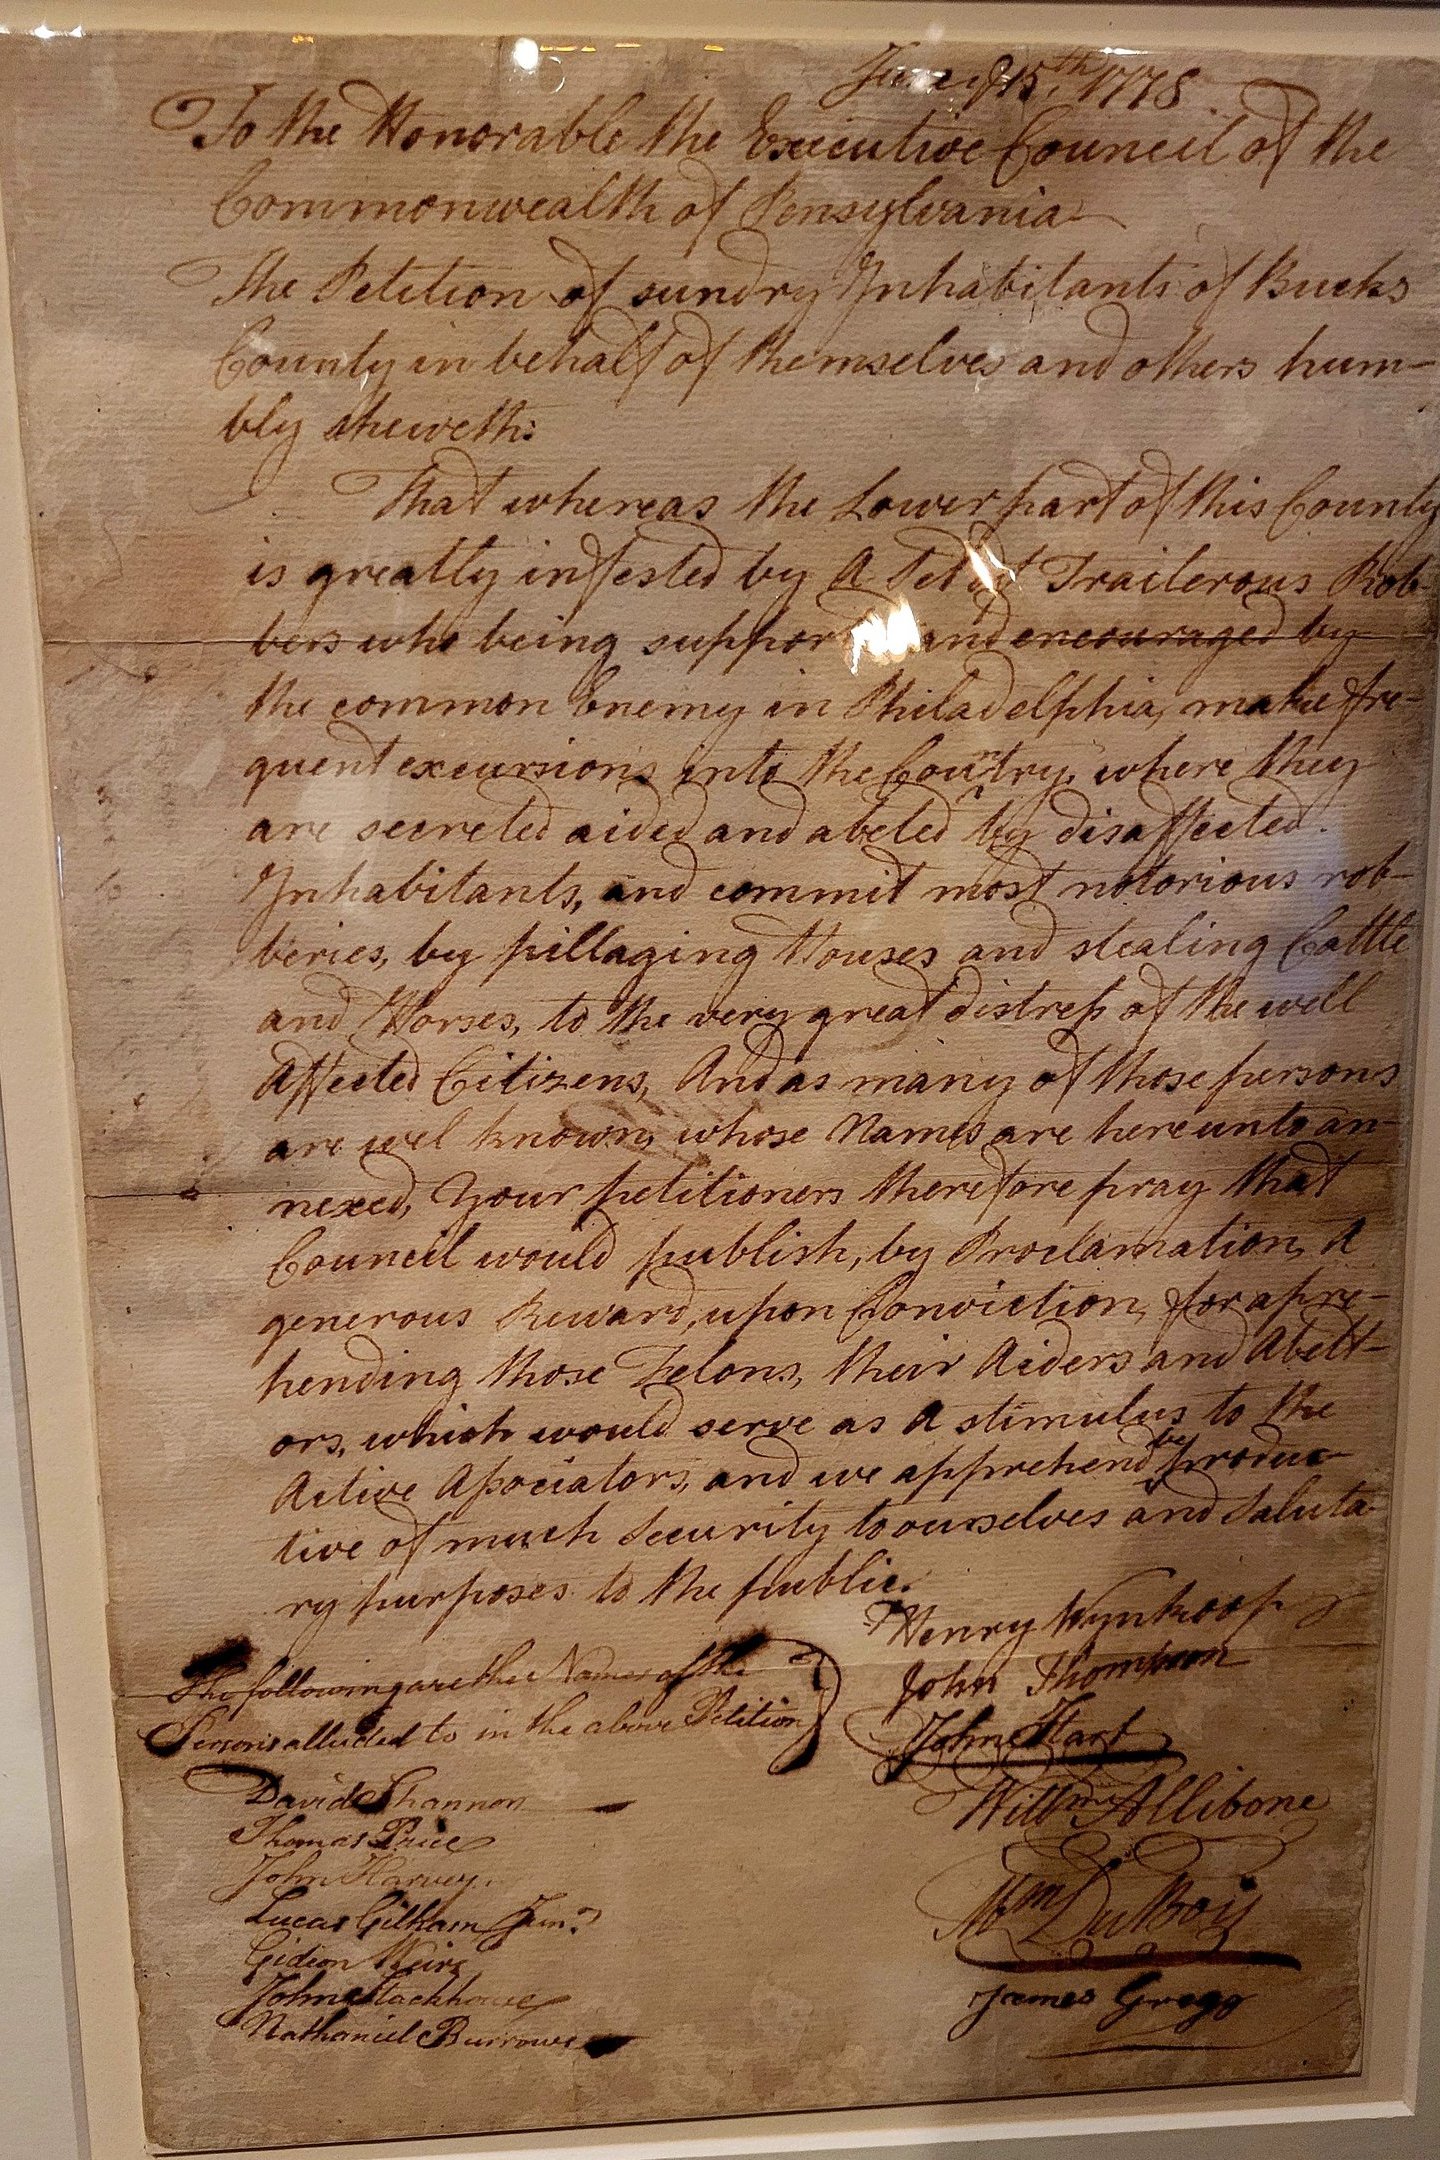 June 15th, 1778
To the Honorable the Executive Council of the
Commonwealth of Pensylvania
The Petition of sundry Inhabitants of Bucks
County in behalf of themselves and others hum-
bly sheweth:
That whereas the Lower part of this County
is greatly infested by A Set of Traiterous Rob-
bers who being and encouraged by
the common Enemy in Philadelphia, make fre-
quent excursions into the Country, where they
are secreted aided and abeted by disaffected
Inhabitants, and commit most notorious rob-
beries, by pillaging Houses and stealing Cattle
and Horses, to the very great distress of the well
Affected Citizens, And as many of those persons
are wel known, whose Names are hereunto an-
nexed, Your petitioners therefore pray that
Council would publish, by Proclamation, A
generous Reward, upon Conviction, for apre-
hending those Felons, their Aiders and Abett-
ors, which would serve as A stimulus to the
Active Associators, and we apprehend be produc-
tive of much Security to ourselves and Saluta-
ry purposes to the public.
Henry Wynkoop
John Thompson
John Hart
Willm Allibone
Wm DuBois
James Gregg
The following are the Names of the
Persons alluded to in the above Petition
David Shannon
Thomas Price
John Harvey
Lucas Gilkam Junr
Gideon
John Stackhouse
Nathaniel Burrows